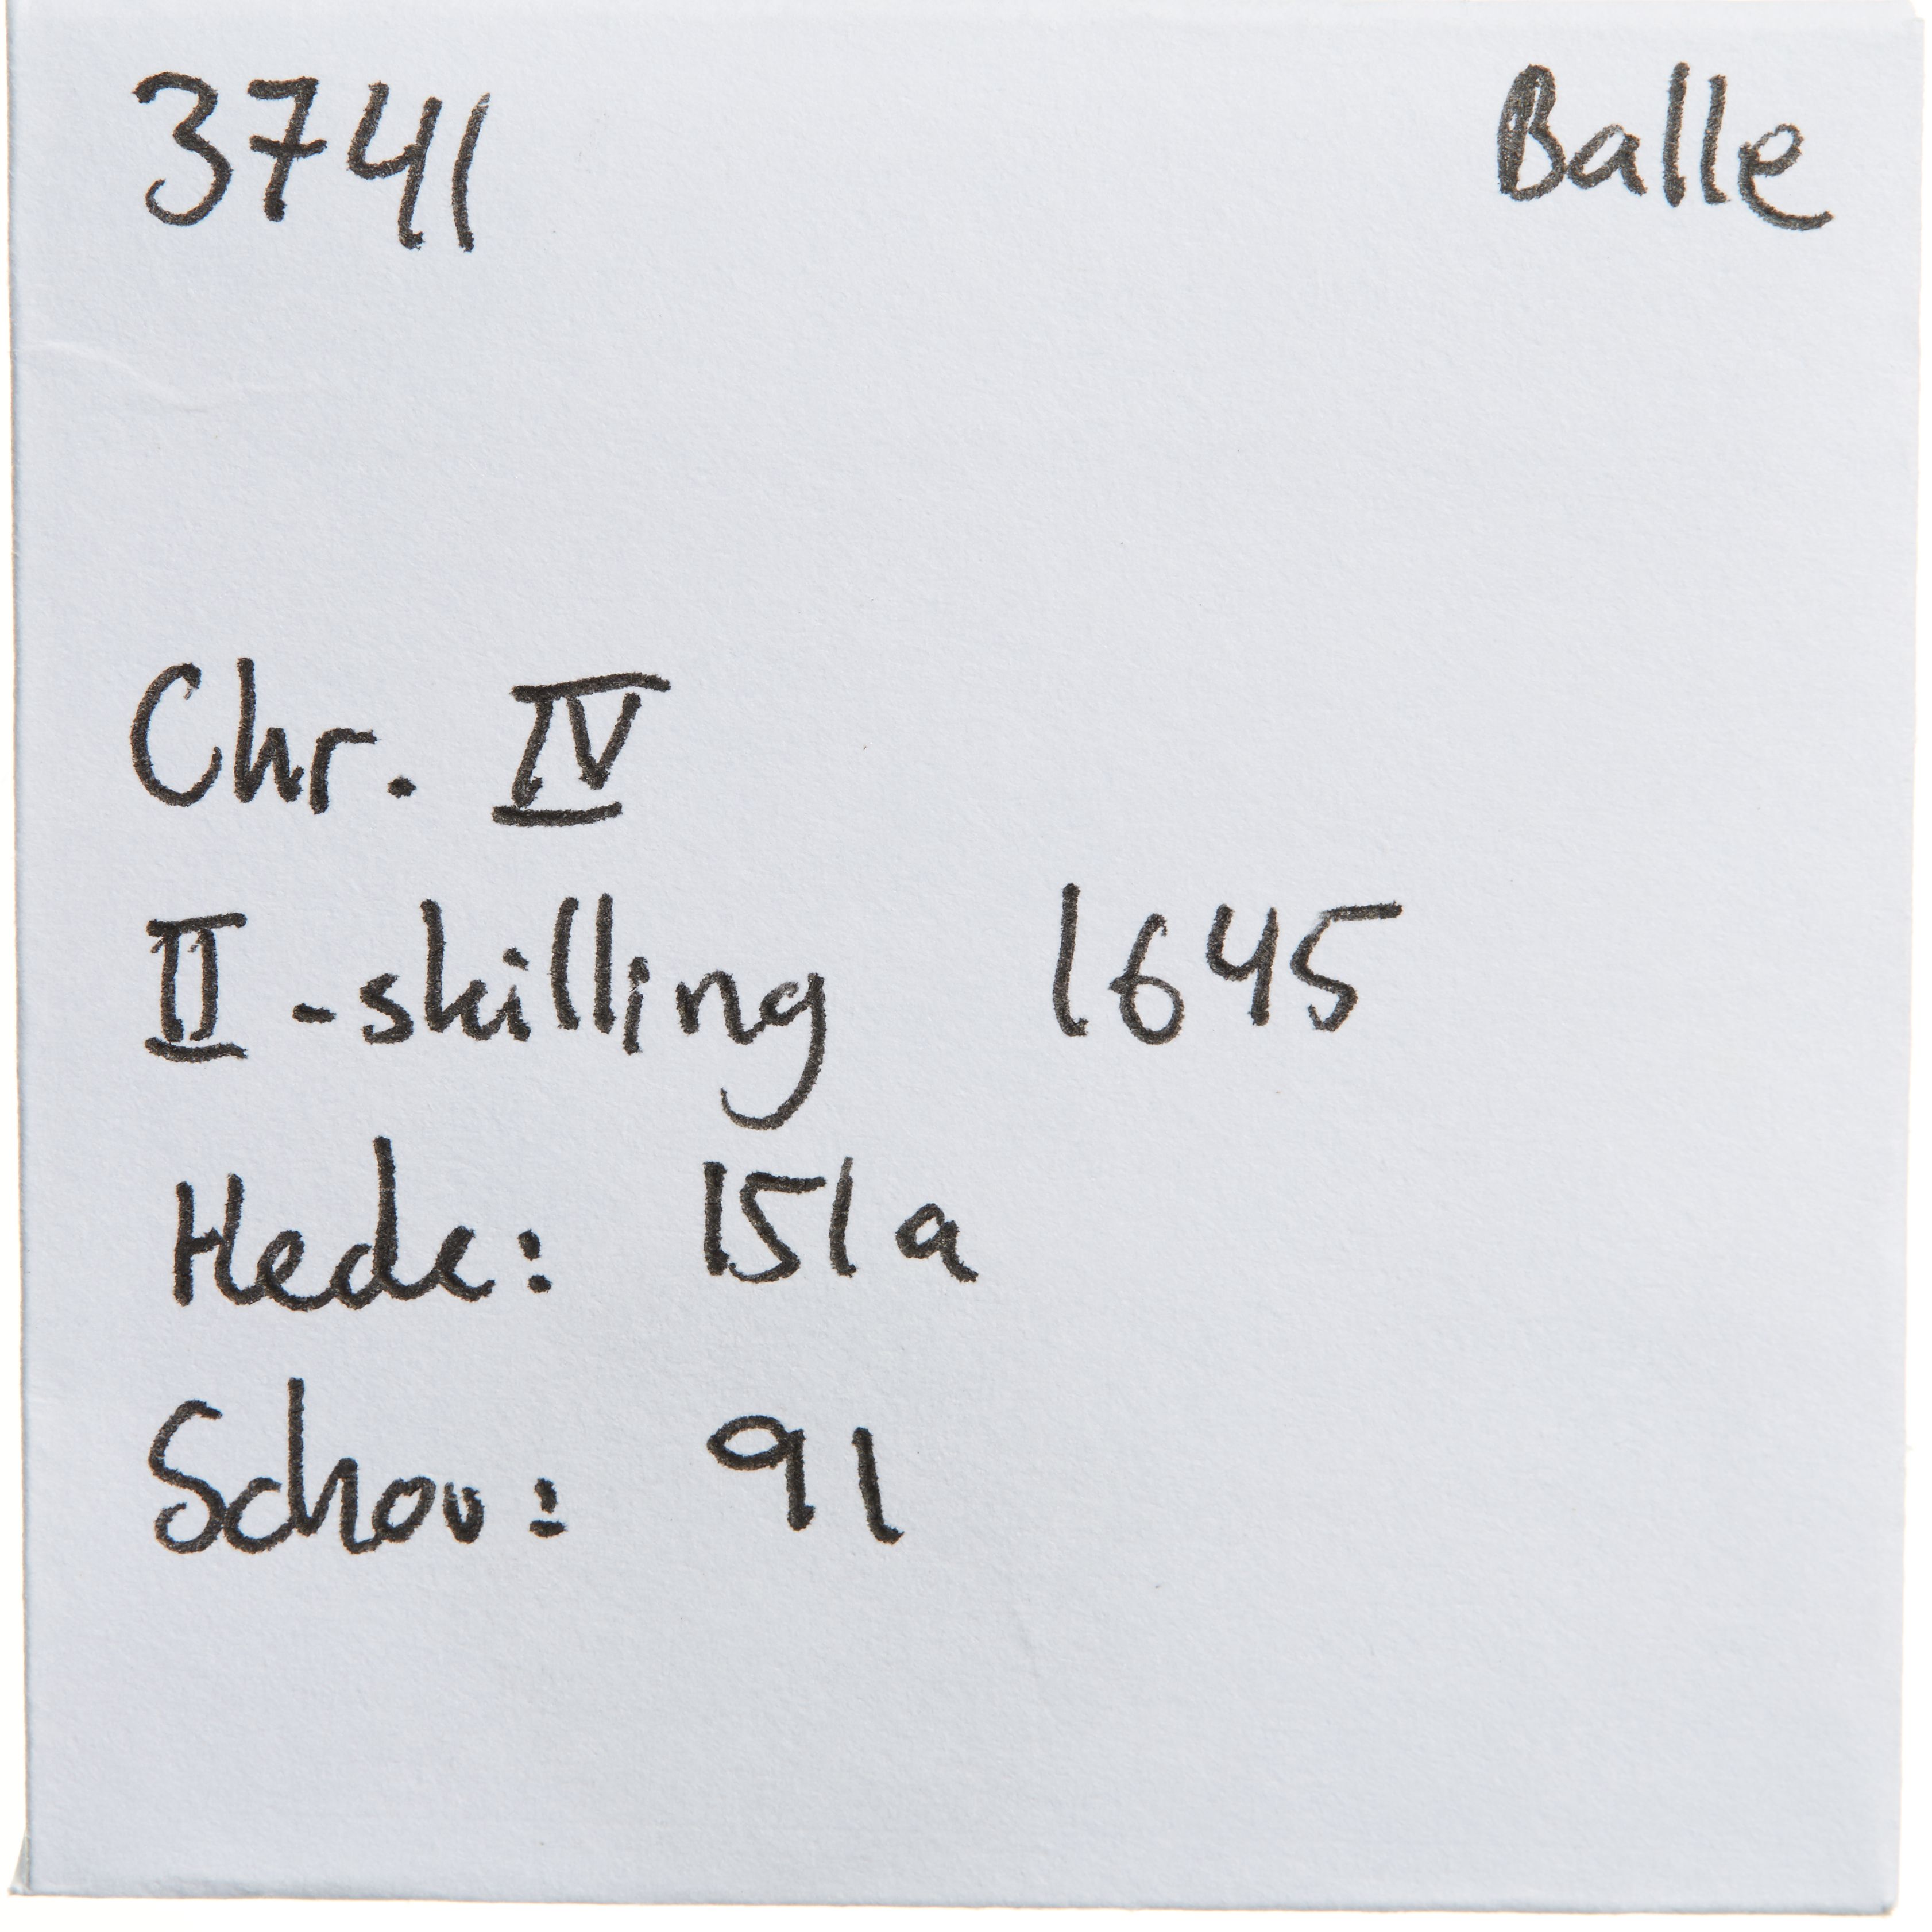 3741 Balle
Chr. IV
II-skilling 1645
Hede: 151a
Schou: 91